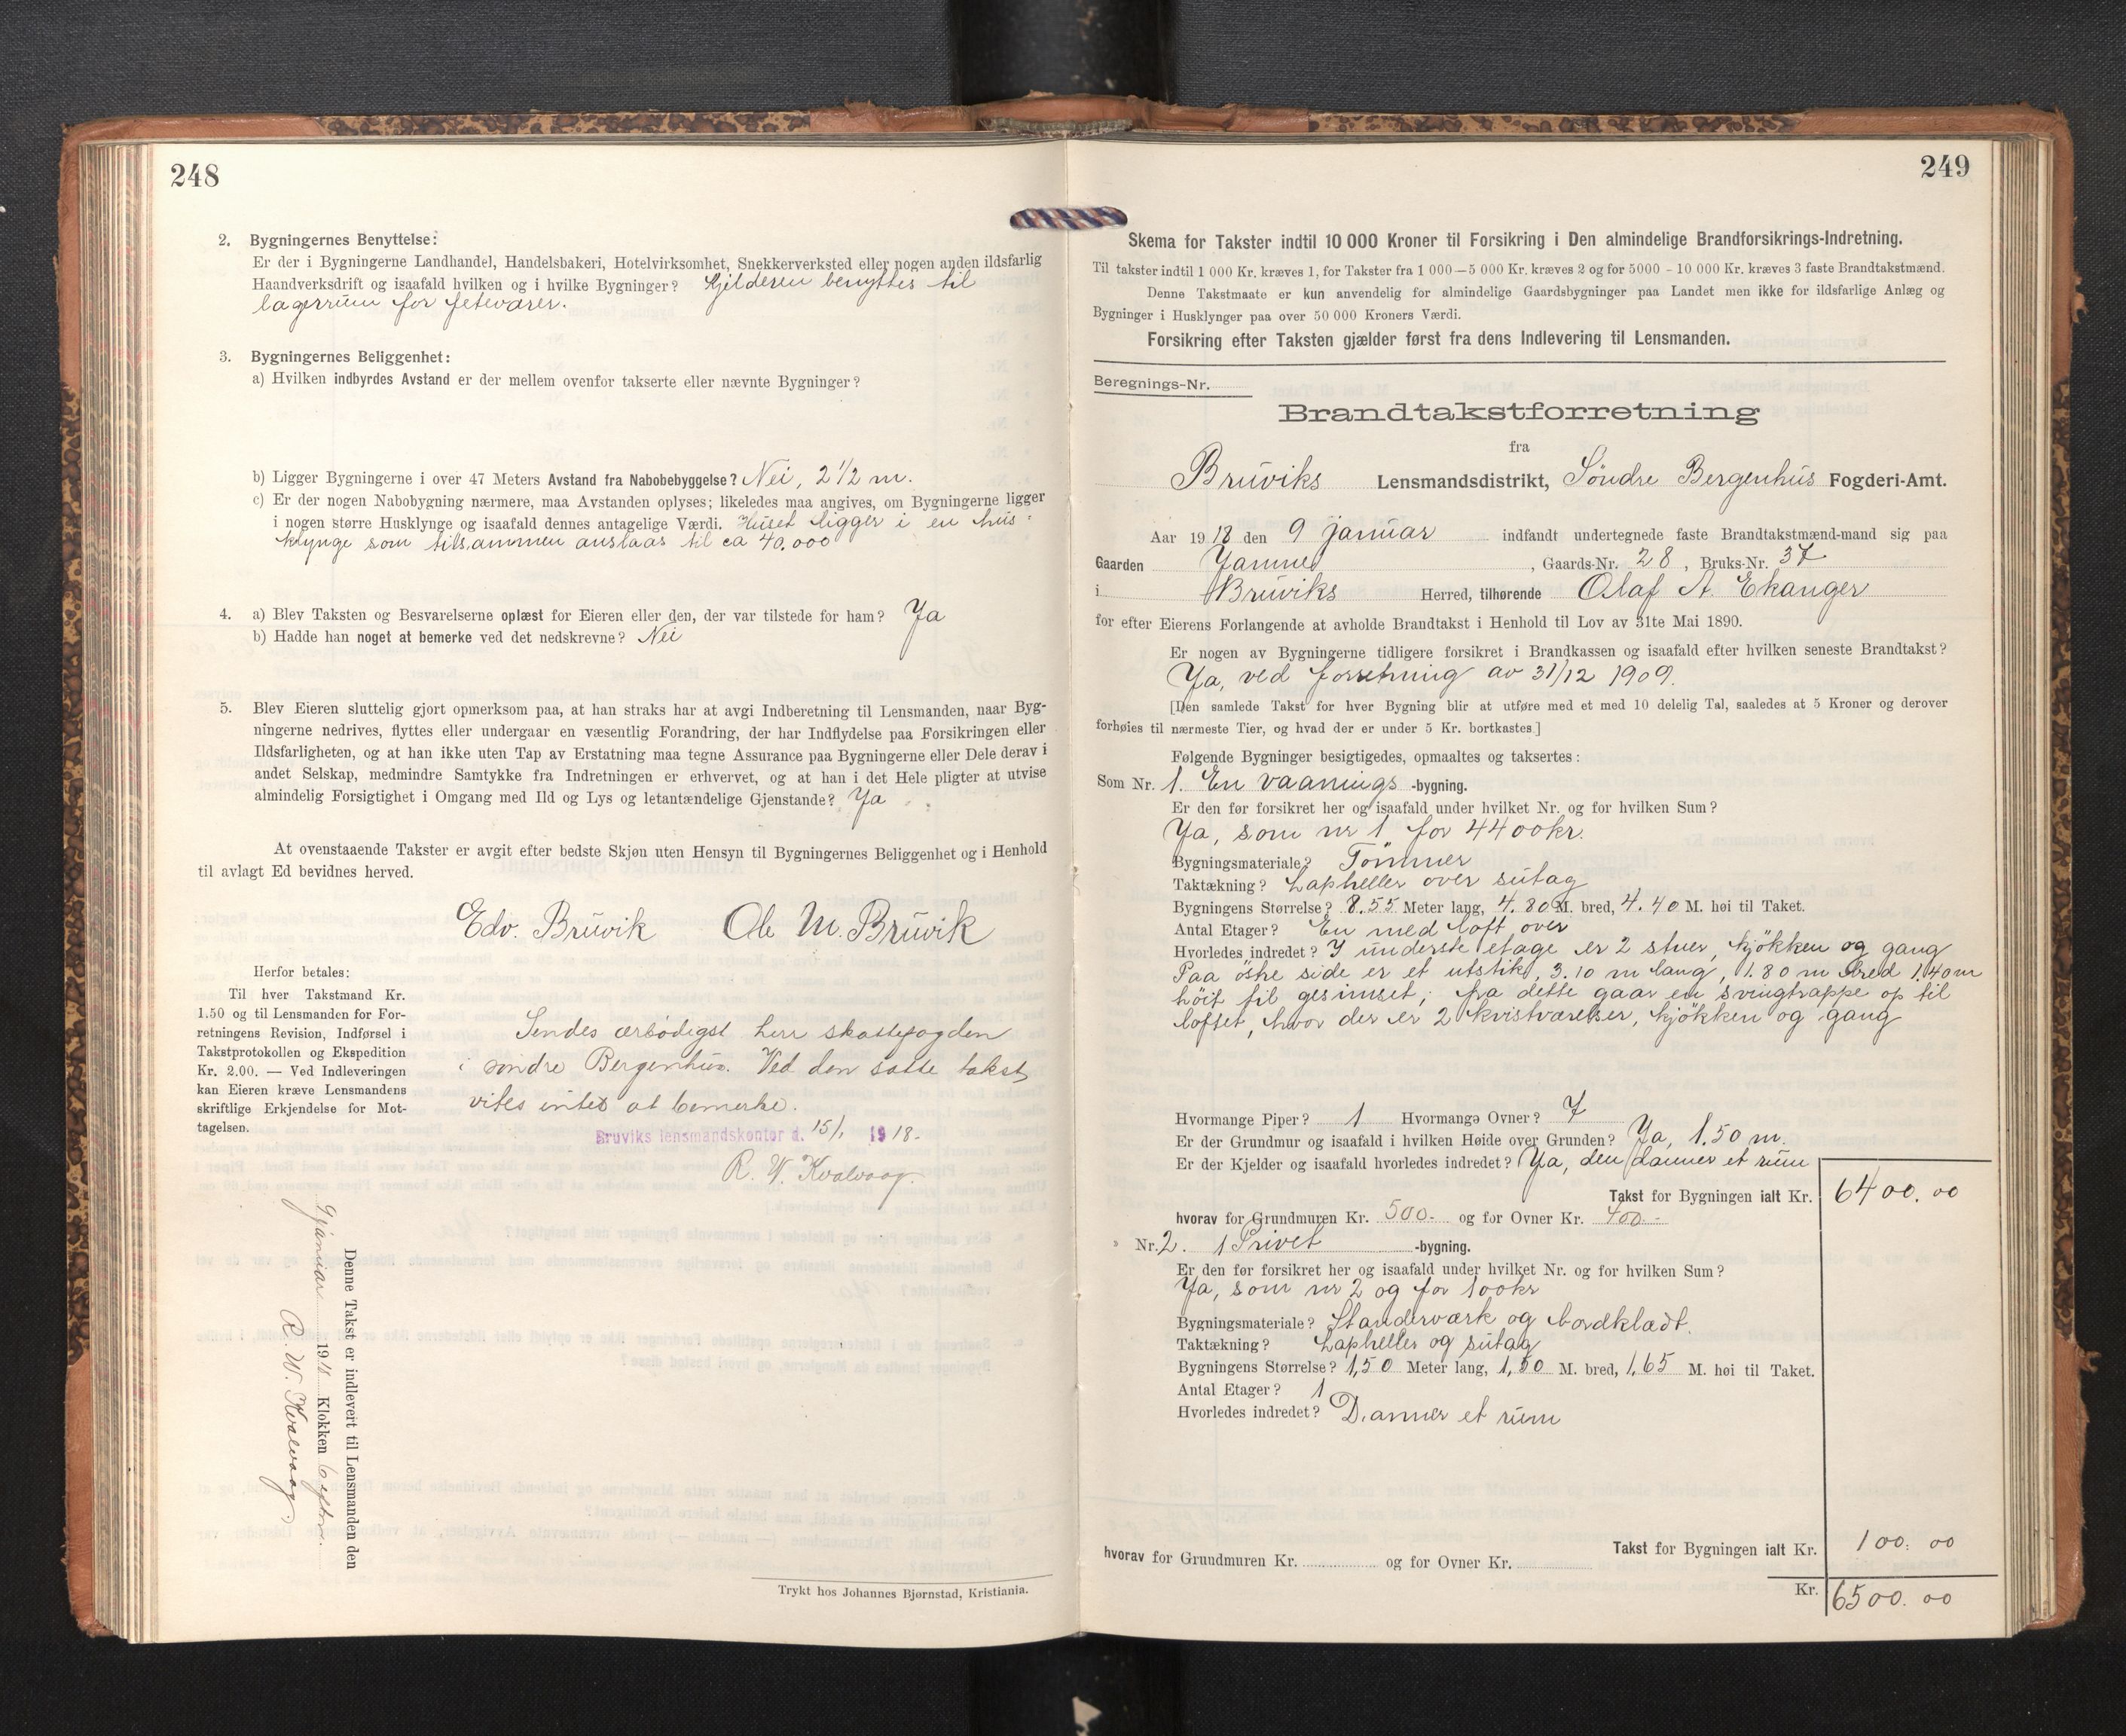 248
2. Bygningernes Benyttelse:
Er der i Bygningerne Landhandel, Handelsbakeri, Hotelvirksomhet, Snekkerverksted eller nogen anden ildsfarlig
Haandverksdrift og isaafald hvilken og i hvilke Bygninger? Kjelderen benyttes til
lagerrum for fetevarer.
3. Bygningernes Beliggenhet:
a) Hvilken indbyrdes Avstand er der mellem ovenfor takserte eller nævnte Bygninger?
b) Ligger Bygningerne i over 47 Meters Avstand fra Nabobebyggelse? Nei, 2 1/2 m.
c) Er der nogen Nabobygning nærmere, maa Avstanden oplyses; likeledes maa angives, om Bygningerne ligger
i nogen større Husklynge og isaafald dennes antagelige Værdi. Huset ligger i en hus-
klynge som tilsammen anslaas til ca 40.000
4. a) Blev Taksten og Besvarelserne oplæst for Eieren eller den, der var tilstede for ham? Ja
b) Hadde han noget at bemerke ved det nedskrevne? Nei
5. Blev Eieren sluttelig gjort opmerksom paa, at han straks har at avgi Indberetning til Lensmanden, naar Byg-
ningerne nedrives, flyttes eller undergaar en væsentlig Forandring, der har Indflydelse paa Forsikringen eller
Ildsfarligheten, og at han ikke uten Tap av Erstatning maa tegne Assurance paa Bygningerne eller Dele derav i
andet Selskap, medmindre Samtykke fra Indretningen er erhvervet, og at han i det Hele pligter at utvise
almindelig Forsigtighet i Omgang med Ild og Lys og letantændelige Gjenstande? Ja
At ovenstaaende Takster er avgit efter bedste Skjøn uten Hensyn til Bygningernes Beliggenhet og i Henhold
til avlagt Ed bevidnes herved.
Edv. Bruvik Ole M. Bruvik
Herfor betales:
Til hver Takstmand Kr.
1.50 og til Lensmanden for For-
retningens Revision, Indførsel i
Takstprotokollen og Ekspedition
Kr. 2.00. — Ved Indleveringen
kan Eieren kræve Lensmandens
skriftlige Erkjendelse for Mot-
tagelsen.
Sendes ærbødigst herr skattefogden
i søndre Bergenhus. Ved den satte takst
vites intet at bemerke.
Bruviks lensmandskontor d. 15/1 1918.
R. W. Kvalvaag.
Denne Takst er indlevert til Lensmanden den
9 januar 1918 Klokken 6 efterm.
R. W. Kvalvaag
Trykt hos Johannes Bjørnstad, Kristiania.
249
Skema for Takster indtil 10 000 Kroner til Forsikring i Den almindelige Brandforsikrings-Indretning.
Til takster indtil 1 000 Kr. kræves 1, for Takster fra 1 000—5 000 Kr. kræves 2 og for 5000 - 10 000 Kr. kræves 3 faste Brandtakstmænd.
Denne Takstmaate er kun anvendelig for almindelige Gaardsbygninger paa Landet men ikke for ildsfarlige Anlæg og
Bygninger i Husklynger paa over 50 000 Kroners Værdi.
Forsikring efter Taksten gjælder først fra dens Indlevering til Lensmanden.
Beregnings-Nr.
Brandtakstforretning
fra
Bruviks Lensmandsdistrikt, Søndre Bergenhus Fogderi-Amt.
Aar 1918 den 9 januar indfandt undertegnede faste Brandtakstmænd-mand sig paa
Gaarden Jamne, Gaards-Nr. 28, Bruks-Nr. 37
i Bruviks Herred, tilhørende Olaf A. Ekanger
for efter Eierens Forlangende at avholde Brandtakst i Henhold til Lov av 31te Mai 1890.
Er nogen av Bygningerne tidligere forsikret i Brandkassen og isaafald efter hvilken seneste Brandtakst?
Ja, ved forretning av 31/12 1909.
[Den samlede Takst for hver Bygning blir at utføre med et med 10 delelig Tal, saaledes at 5 Kroner og derover
forhøies til nærmeste Tier, og hvad der er under 5 Kr. bortkastes]
Følgende Bygninger besigtigedes, opmaaltes og taksertes:
Som Nr. 1. En vaanings -bygning.
Er den før forsikret her og isaafald under hvilket Nr. og for hvilken Sum?
Ja, som nr 1 for 4400kr.
Bygningsmateriale? Tømmer
Taktækning? Lapheller over sutag
Bygningens Størrelse? 8.55 Meter lang, 4.80 M. bred, 4.40 M. høi til Taket.
Antal Etager? En med loft over
Hvorledes indredet? I underste etage er 2 stuer, kjøkken og gang
Paa østre side er et utstik, 3.10 m lang, 1.80 m bred 1.40 m
høit til gesimset; fra dette gaar en svingtrappe op til
loftet, hvor der er 2 kvistværelser, kjøkken og gang
Hvormange Piper? 1 Hvormange Ovner? 7
Er der Grundmur og isaafald i hvilken Høide over Grunden? Ja, 1.50 m.
Er der Kjelder og isaafald hvorledes indredet? Ja, den danner et rum
Takst for Bygningen ialt Kr. 6400.00
hvorav for Grundmuren Kr. 500.- og for Ovner Kr. 400.-
» Nr. 2. 1 Privet -bygning.
Er den før forsikret her og isaafald under hvilket Nr. og for hvilken Sum?
Ja, som nr 2 og for 100kr
Bygningsmateriale? Standerværk og bordklædt.
Taktækning? Lapheller og sutag
Bygningens Størrelse? 1,50 Meter lang, 1,50 M. bred, 1,65 M. høi til Taket.
Antal Etager? 1
Hvorledes indredet? Danner et rum
Takst for Bygningen ialt Kr. 100.00
hvorav for Grundmuren Kr. og for Ovner Kr.
Kr. 6500.00